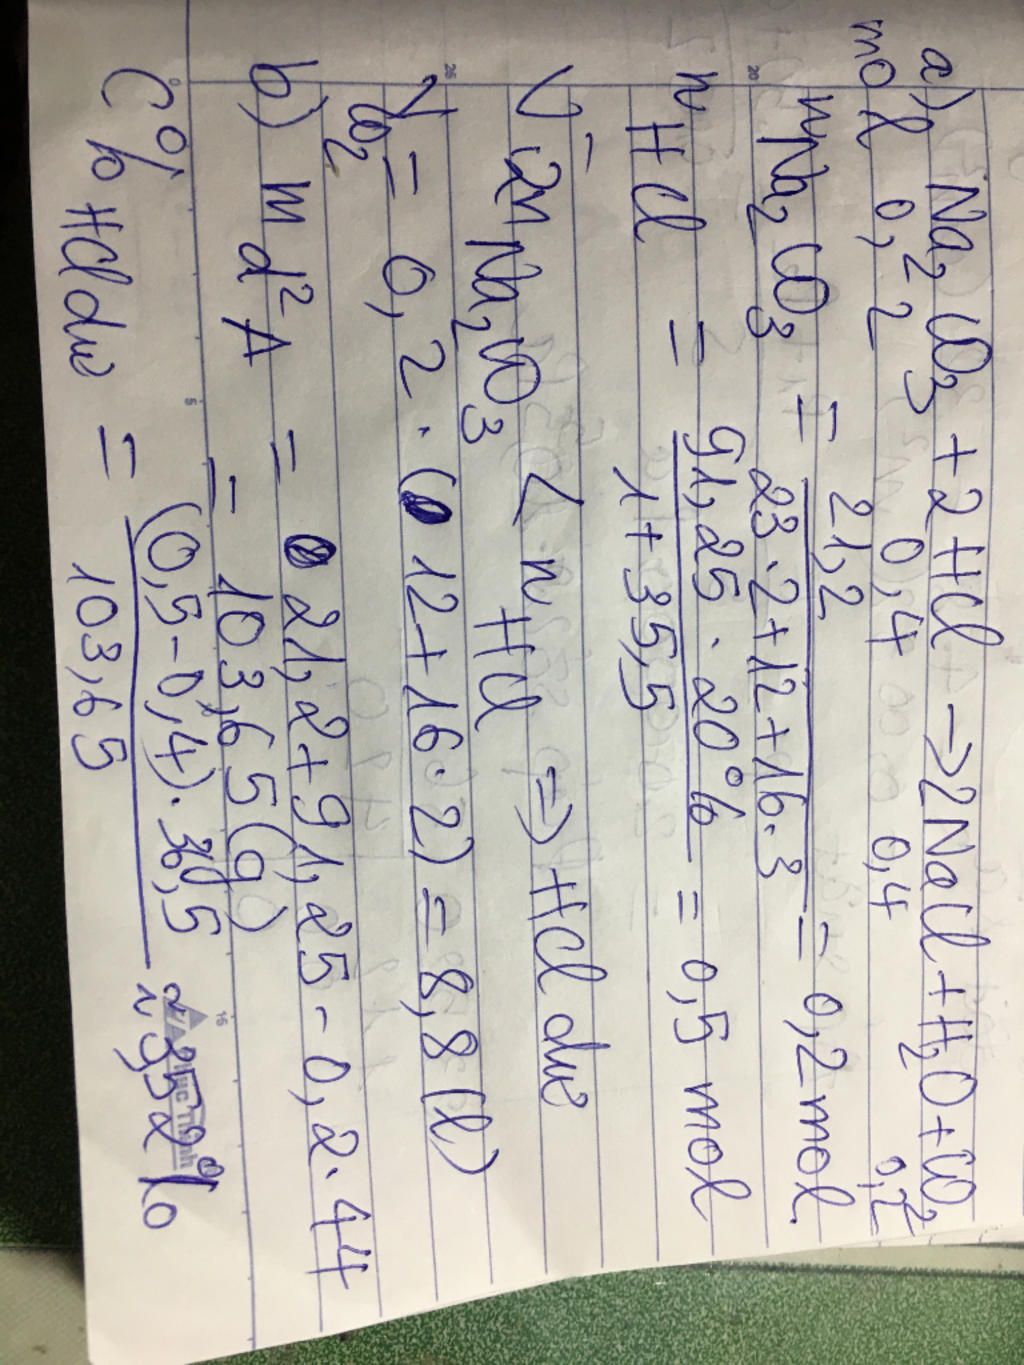 a) Na₂CO₃ + 2HCl → 2NaCl + H₂O + CO₂
mol 0,2 0,4 0,4 0,2
nNa₂CO₃ = 21,2 / 23.2+12+16.3 = 0,2 mol.
nHCl = 91,25 . 20% / 1+35,5 = 0,5 mol
Vì 2nNa₂CO₃ < nHCl => HCl dư
VCO₂ = 0,2.(12+16.2) = 8,8 (l)
b) m d² A = 21,2+91,25-0,2.44
= 103,65 (g)
C% HCl dư = (0,5-0,4).36,5 / 103,65 ≈ 3,52%